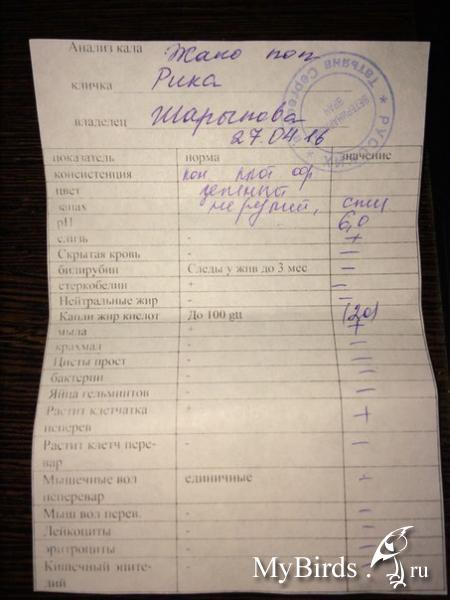 Анализ кала Жако поп
кличка Рика
владелец Шарыпова
27.04.16
показатель норма значение
консистенция
цвет
запах
pH 6,0
слизь - +
Скрытая кровь - -
билирубин Следы у жив до 3 мес -
стеркобелин + -
Нейтральные жир - -
Капли жир кислот До 100 gtt (20)
мыла + +
крахмал - -
Цисты прост - -
бактерии - -
Яйца гельминтов - -
Растит клетчатка + +
неперев
Растит клетч пере- - -
вар
Мышечные вол единичные -
неперевар
Мыш вол перев. - -
Лейкоциты - -
эритроциты - -
Кишечный эпите- - -
лий
MyBirds.ru